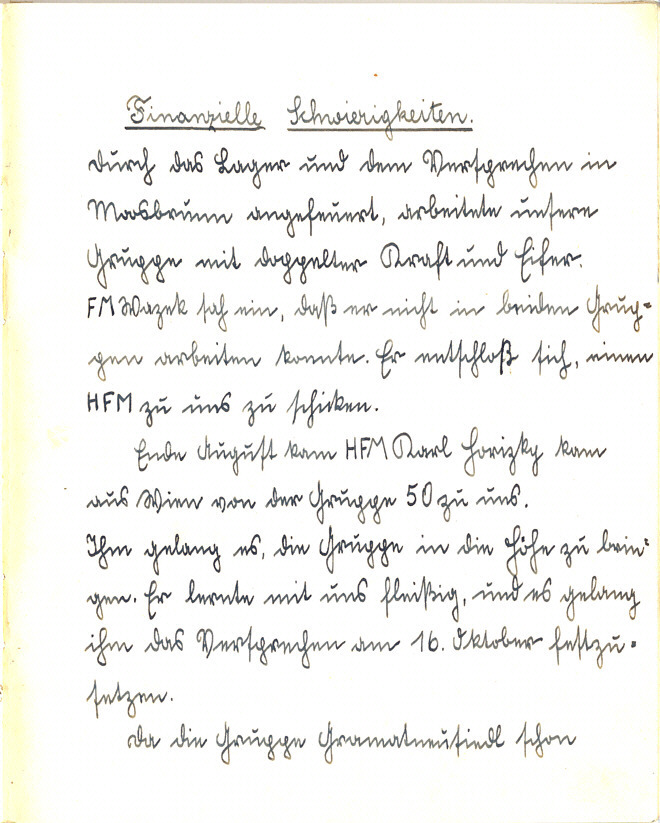 Finanzielle Schwierigkeiten.
Durch das Lager und dem Versprechen in
Moosbrunn angefeuert, arbeitete unsere
Gruppe mit doppelter Kraft und Eifer.
FM Wazek sah ein, daß er nicht in beiden Grup=
pen arbeiten konnte. Er entschloß sich, einen
HFM zu uns zu schicken.
Ende August kam HFM Karl Horizky kam
aus Wien von der Gruppe 50 zu uns.
Ihm gelang es, die Gruppe in die Höhe zu brin=
gen. Er lernte mit uns fleißig, und es gelang
ihm das Versprechen am 16. Oktober festzu=
setzen.
Da die Gruppe Gramatneusiedl schon